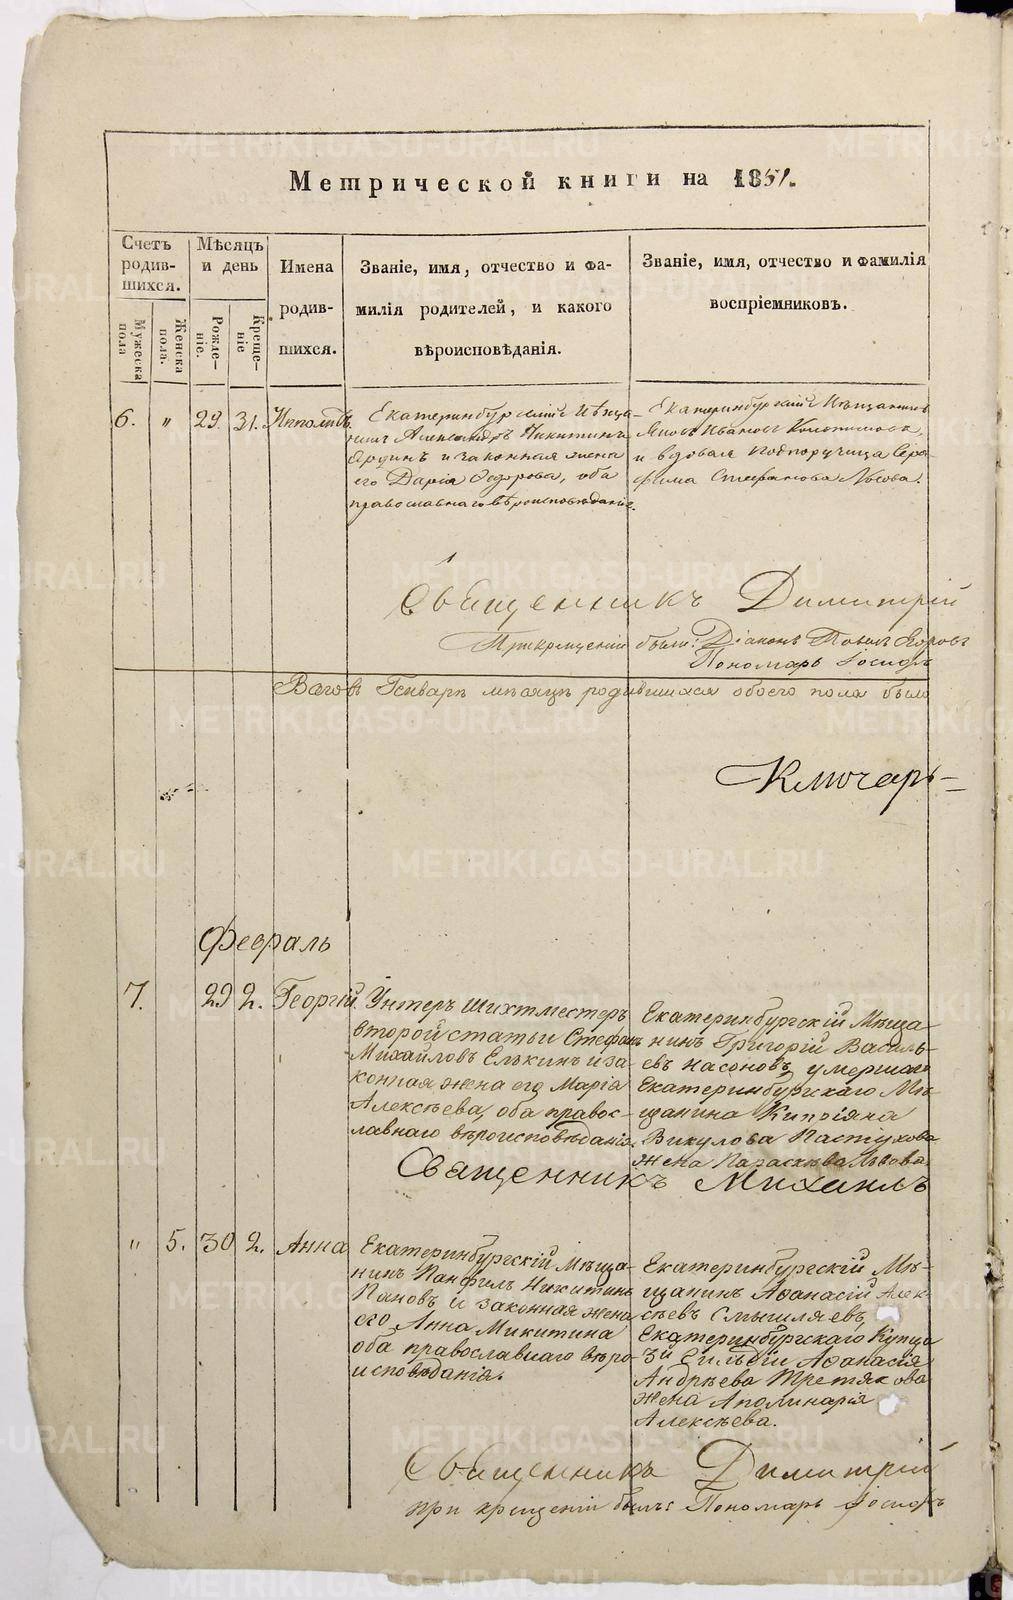 Метрической книги на 1851.
Счетъ родив- шихся.
Мѣсяцъ и день
Имена родив- шихся.
Званіе, имя, отчество и фа-
милія родителей, и какого
вѣроисповѣданія.
Званіе, имя, отчество и фамилія
воспріемниковъ.
Мужеска пола
Женска пола.
Рожде- ніе.
Креще- ніе
6. " 29. 31. Ипполитъ.
Екатеринбургскій Мѣща-
нинъ Александръ Никитинъ
и законная жена
его Дарія Ѳедорова, оба
православнаго вѣроисповѣданіе.
Екатеринбургскій Мѣщанинъ
Яковъ Ивановъ
и вдовая Подпоручица Сера-
фима Стефанова
Священникъ Димитрій
При крещеніи были: Діаконъ Павелъ Егоровъ
Пономарь Іосифъ
Всего въ Генварѣ мѣсяцѣ родившихся обоего пола было
Ключарь
Февраль
7. 29 2. Георгій.
Унтеръ Шихтместеръ
второй статьи Стефанъ
Михайловъ Елькинъ и за-
конная жена его Марія
Алексѣева, оба право-
славнаго вѣроисповѣданія.
Екатеринбургскій Мѣща-
нинъ Григорій Василь-
евъ Насоновъ, умершаго
Екатеринбургскаго Мѣ-
щанина Кипріяна
Викулова Пастухова
жена Параскѣва Львова.
Священникъ Михаилъ
" 5. 30 2. Анна
Екатеринбургскій Мѣща-
нинъ Панфилъ Никитинъ
Пановъ и законная жена
его Анна Микитина
оба православнаго вѣро-
исповѣданія.
Екатеринбургскій Мѣ-
щанинъ Аѳанасій Алек-
сѣевъ Смышляевъ,
Екатеринбургскаго Купца
3й Гильдіи Аѳанасія
Андрѣева Третякова
жена Аполинарія
Алексѣева.
Священникъ Димитрій
при крещеніи былъ: Пономарь Іосифъ